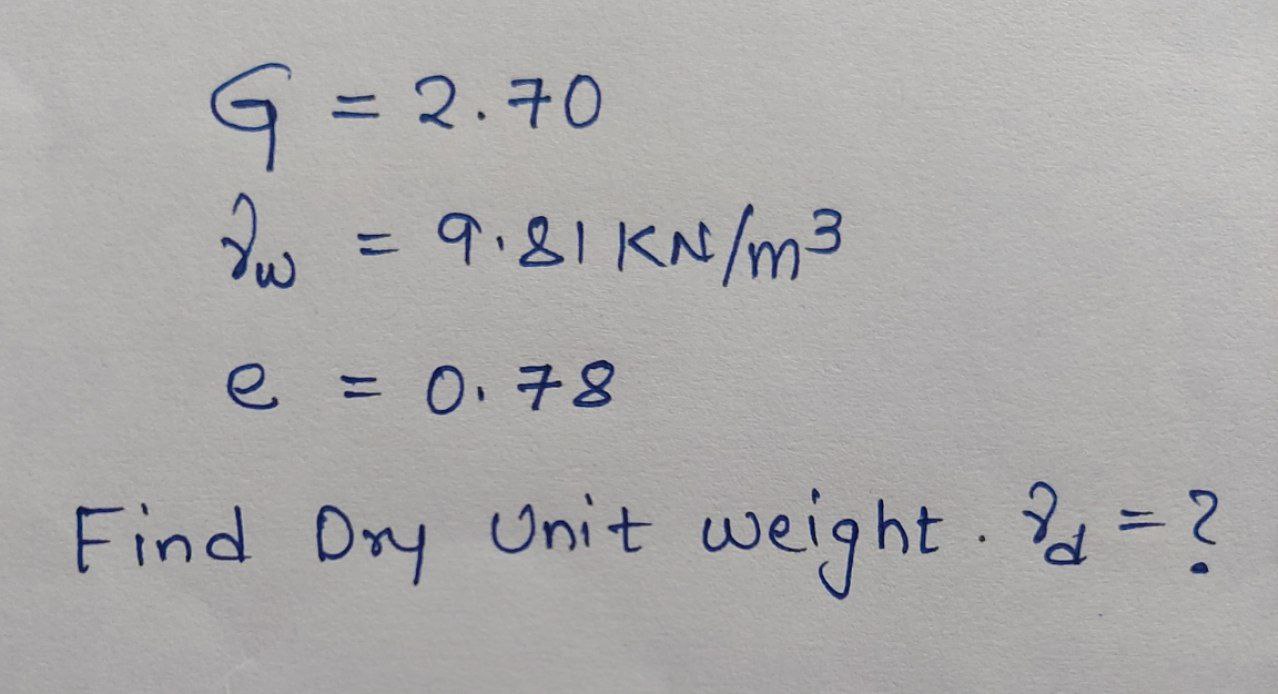 G = 2.70
γw = 9.81 KN/m³
e = 0.78
Find Dry Unit weight. γd = ?